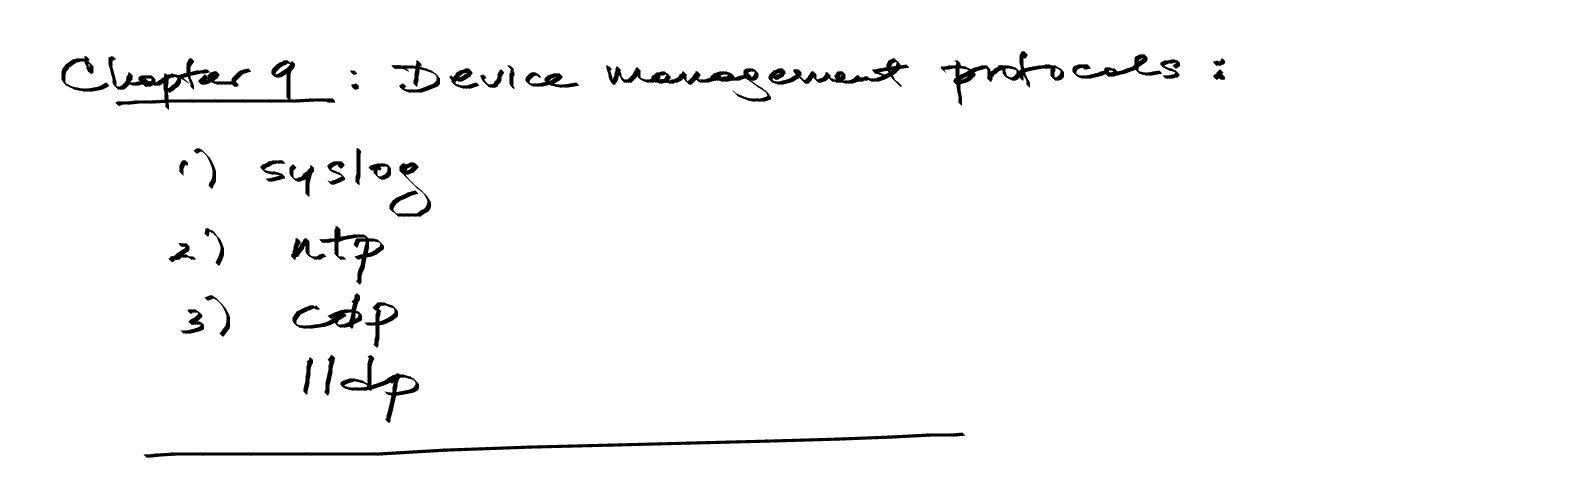 Chapter 9 : Device management protocols :
1) syslog
2) ntp
3) cdp
lldp